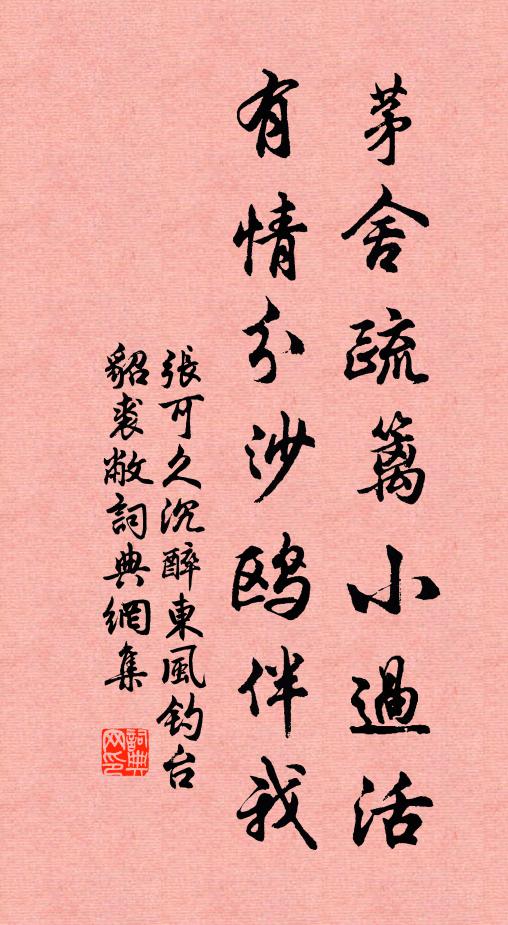 茅舍疏篱小過活
有情分沙鸥伴我
張可久沉醉東風钓台
貂裘敝詞典網集
詞典网印